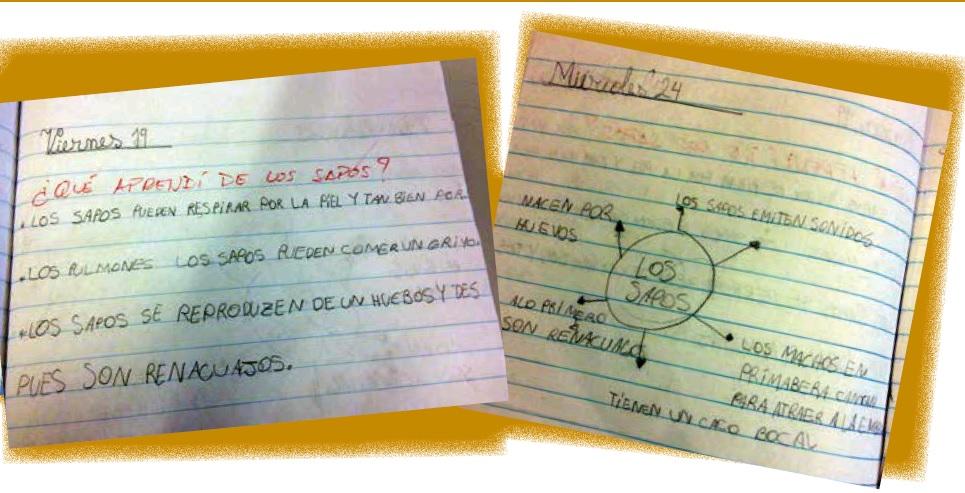 Viernes 19
¿QUÉ APRENDÍ DE LOS SAPOS?
.LOS SAPOS PUEDEN RESPIRAR POR LA PIEL Y TAN BIEN POR
.LOS PULMONES LOS SAPOS PUEDEN COMER UN GRIYO.
.LOS SAPOS SE REPRODUZEN DE UN HUEBOS Y DES
PUES SON RENACUAJOS.
Miercoles 24
NACEN POR
HUEVOS
LOS SAPOS EMITEN SONIDOS
LOS
SAPOS
ALO PRIMERO
SON
LOS MACHOS EN
PRIMABERA
PARA ATRAER A
TIENEN UN BOCAL